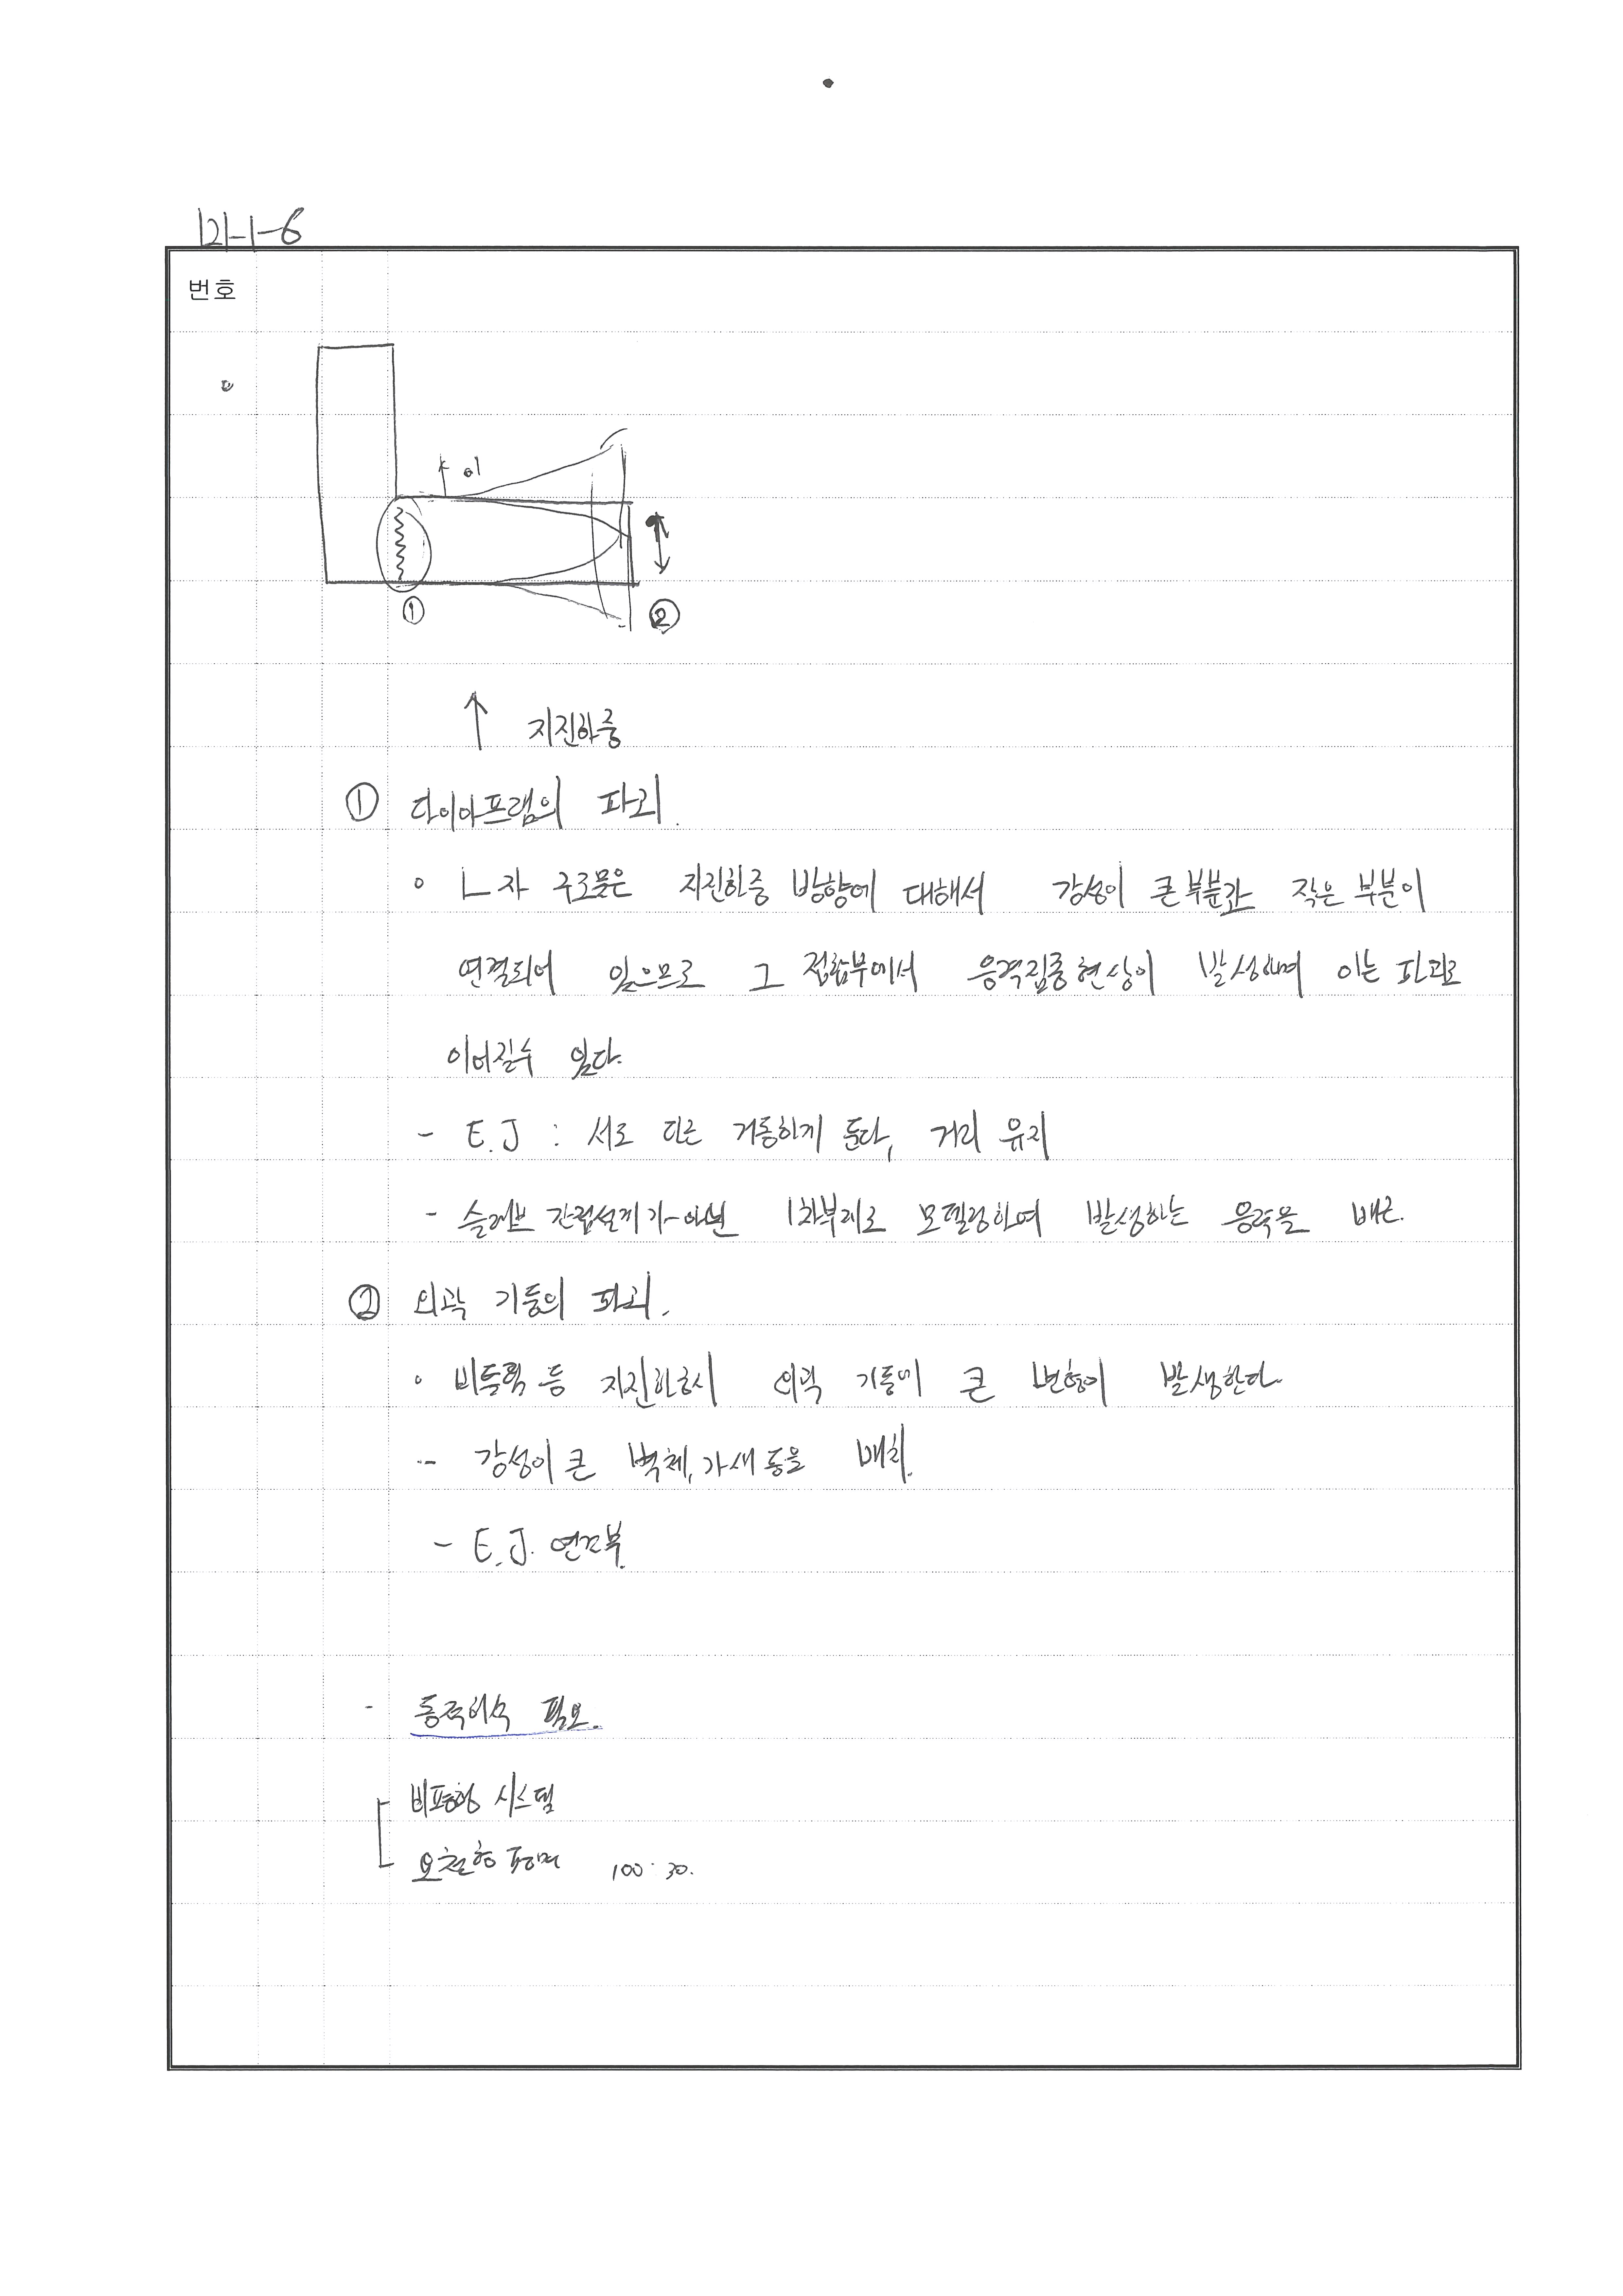 121-1-6
번호
이
①
②
지진하중
① 다이아프램의 파괴.
ㄴ자 구조물은 지진하중 방향에 대해서 강성이 큰 부분과 작은 부분이
연결되어 있으므로 그 접합부에서 응력집중현상이 발생하며 이는 파괴로
이어질수 있다.
- E.J : 서로 다른 거동하게 둔다, 거리 유지
- 슬래브 간접설계가 아닌 1차부재로 모델링하여 발생하는 응력을 배근.
② 외곽 기둥의 파괴.
비틀림 등 지진하중시 외곽 기둥에 큰 변형이 발생한다.
- 강성이 큰 벽체, 가새 등을 배치.
- E.J.
- 동적해석 필요.
비평형 시스템
요철형 평면 100 : 30.